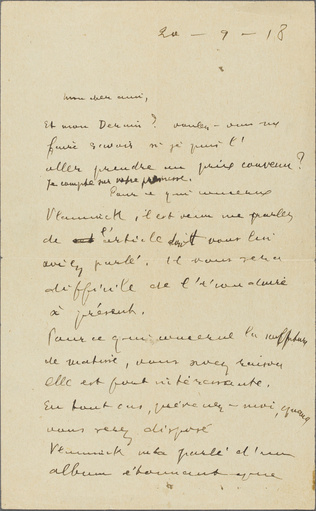 20 - 9 - 18
mon cher ami,
Et mon Derain? voulez-vous me
faire savoir si je puis l'
aller prendre au prix convenu?
Je compte sur votre promesse.
Pour ce qui concerne
Vlaminck, il est venu me parler
de l'article dont vous lui
aviez parlé. Il vous sera
difficile de l'éconduire
à présent.
Pour ce qui concerne la sculpture
de matisse, vous avez raison
elle est fort intéressante.
En tout cas, prévenez-moi, quand
vous serez disposé
Vlaminck m'a parlé d'un
album étonnant que